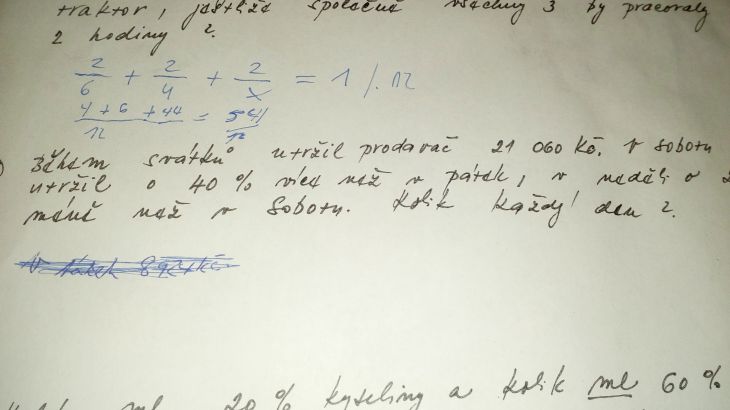 traktor, jestliže společně všechny 3 by pracovaly
2 hodiny ?
2/6 + 2/4 + 2/x = 1 /. 12
4 + 6 + 44 / 12 = 54 / 12
Během svátků utržil prodavač 21 060 Kč. V sobotu
utržil o 40 % více než v pátek, v neděli o
méně než v sobotu. Kolik každý den ?
V pátek
ml 20 % kyseliny a kolik ml 60 %